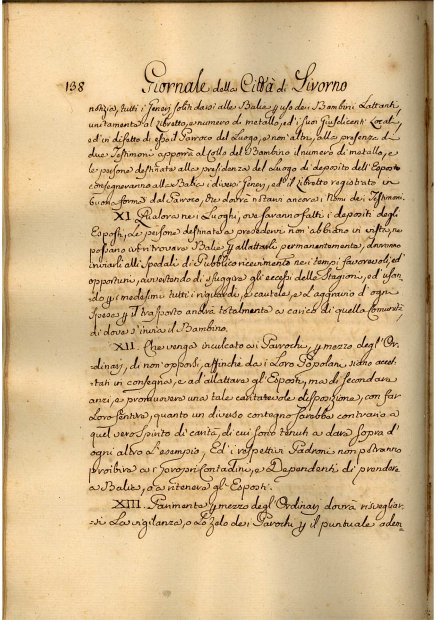 138 Giornale della Città di Livorno
notizia, tutti i Generi soliti darsi alle Balie p uso dei Bambini Lattanti,
unitamente al libretto, e numero di metallo, ed i suoi Giusdicenti Locali,
ed in difetto di essi il Paroco del Luogo, e non altri, alla presenza di
due Testimoni apporrà al Collo del Bambino il numero di metallo, e
le persone destinate alla presidenza del Luogo di deposito dell'Esposto
consegneranno alla Balia i diversi Generi, ed il libretto registrato in
buona forma dal Paroco, che dovrà notarvi ancora i Nomi dei Testimoni.
XI. Qualora nei Luoghi, ove saranno fatti i depositi degli
Esposti, Le persone destinate a presedervi non abbiano in vista, ne
possano ivi ritrovare Balie p allattarli permanentemente, dovranno
inviarli alli Spedali di Pubblico ricevimento nei tempi favorevoli, ed
opportuni, avvertendo di sfuggire gli eccessi delle Stagioni, ed usan-
do p i medesimi tutti i riguardi, e cautele, e L'aggravio d'ogni
spesa p il trasporto andrà totalmente a carico di quella Comunità
di dove s'invia il Bambino.
XII. Che venga inculcato ai Parochi p mezzo degl'Or-
dinarj, di non opporsi, affinchè dai Loro Popolani siano accet-
tati in consegna, e ad allattare gl'Esposti, ma di secondare
anzi, e promuovere una tale caritatevole disposizione, con far
Loro sentire, quanto un diverso contegno sarebbe contrario a
quel vero spirito di carità, di cui sono tenuti a dare sopra d'
ogni altro L'esempio, Ed i respettivi Padroni non potranno
proibire ai proprj Contadini, e Dependenti di prendere
a Balia, o a ritenere gl'Esposti.
XIII. Parimente p mezzo degl'Ordinarj dovrà risvegliar-
si La vigilanza, e Lo zelo dei Parochi p il puntuale adem-